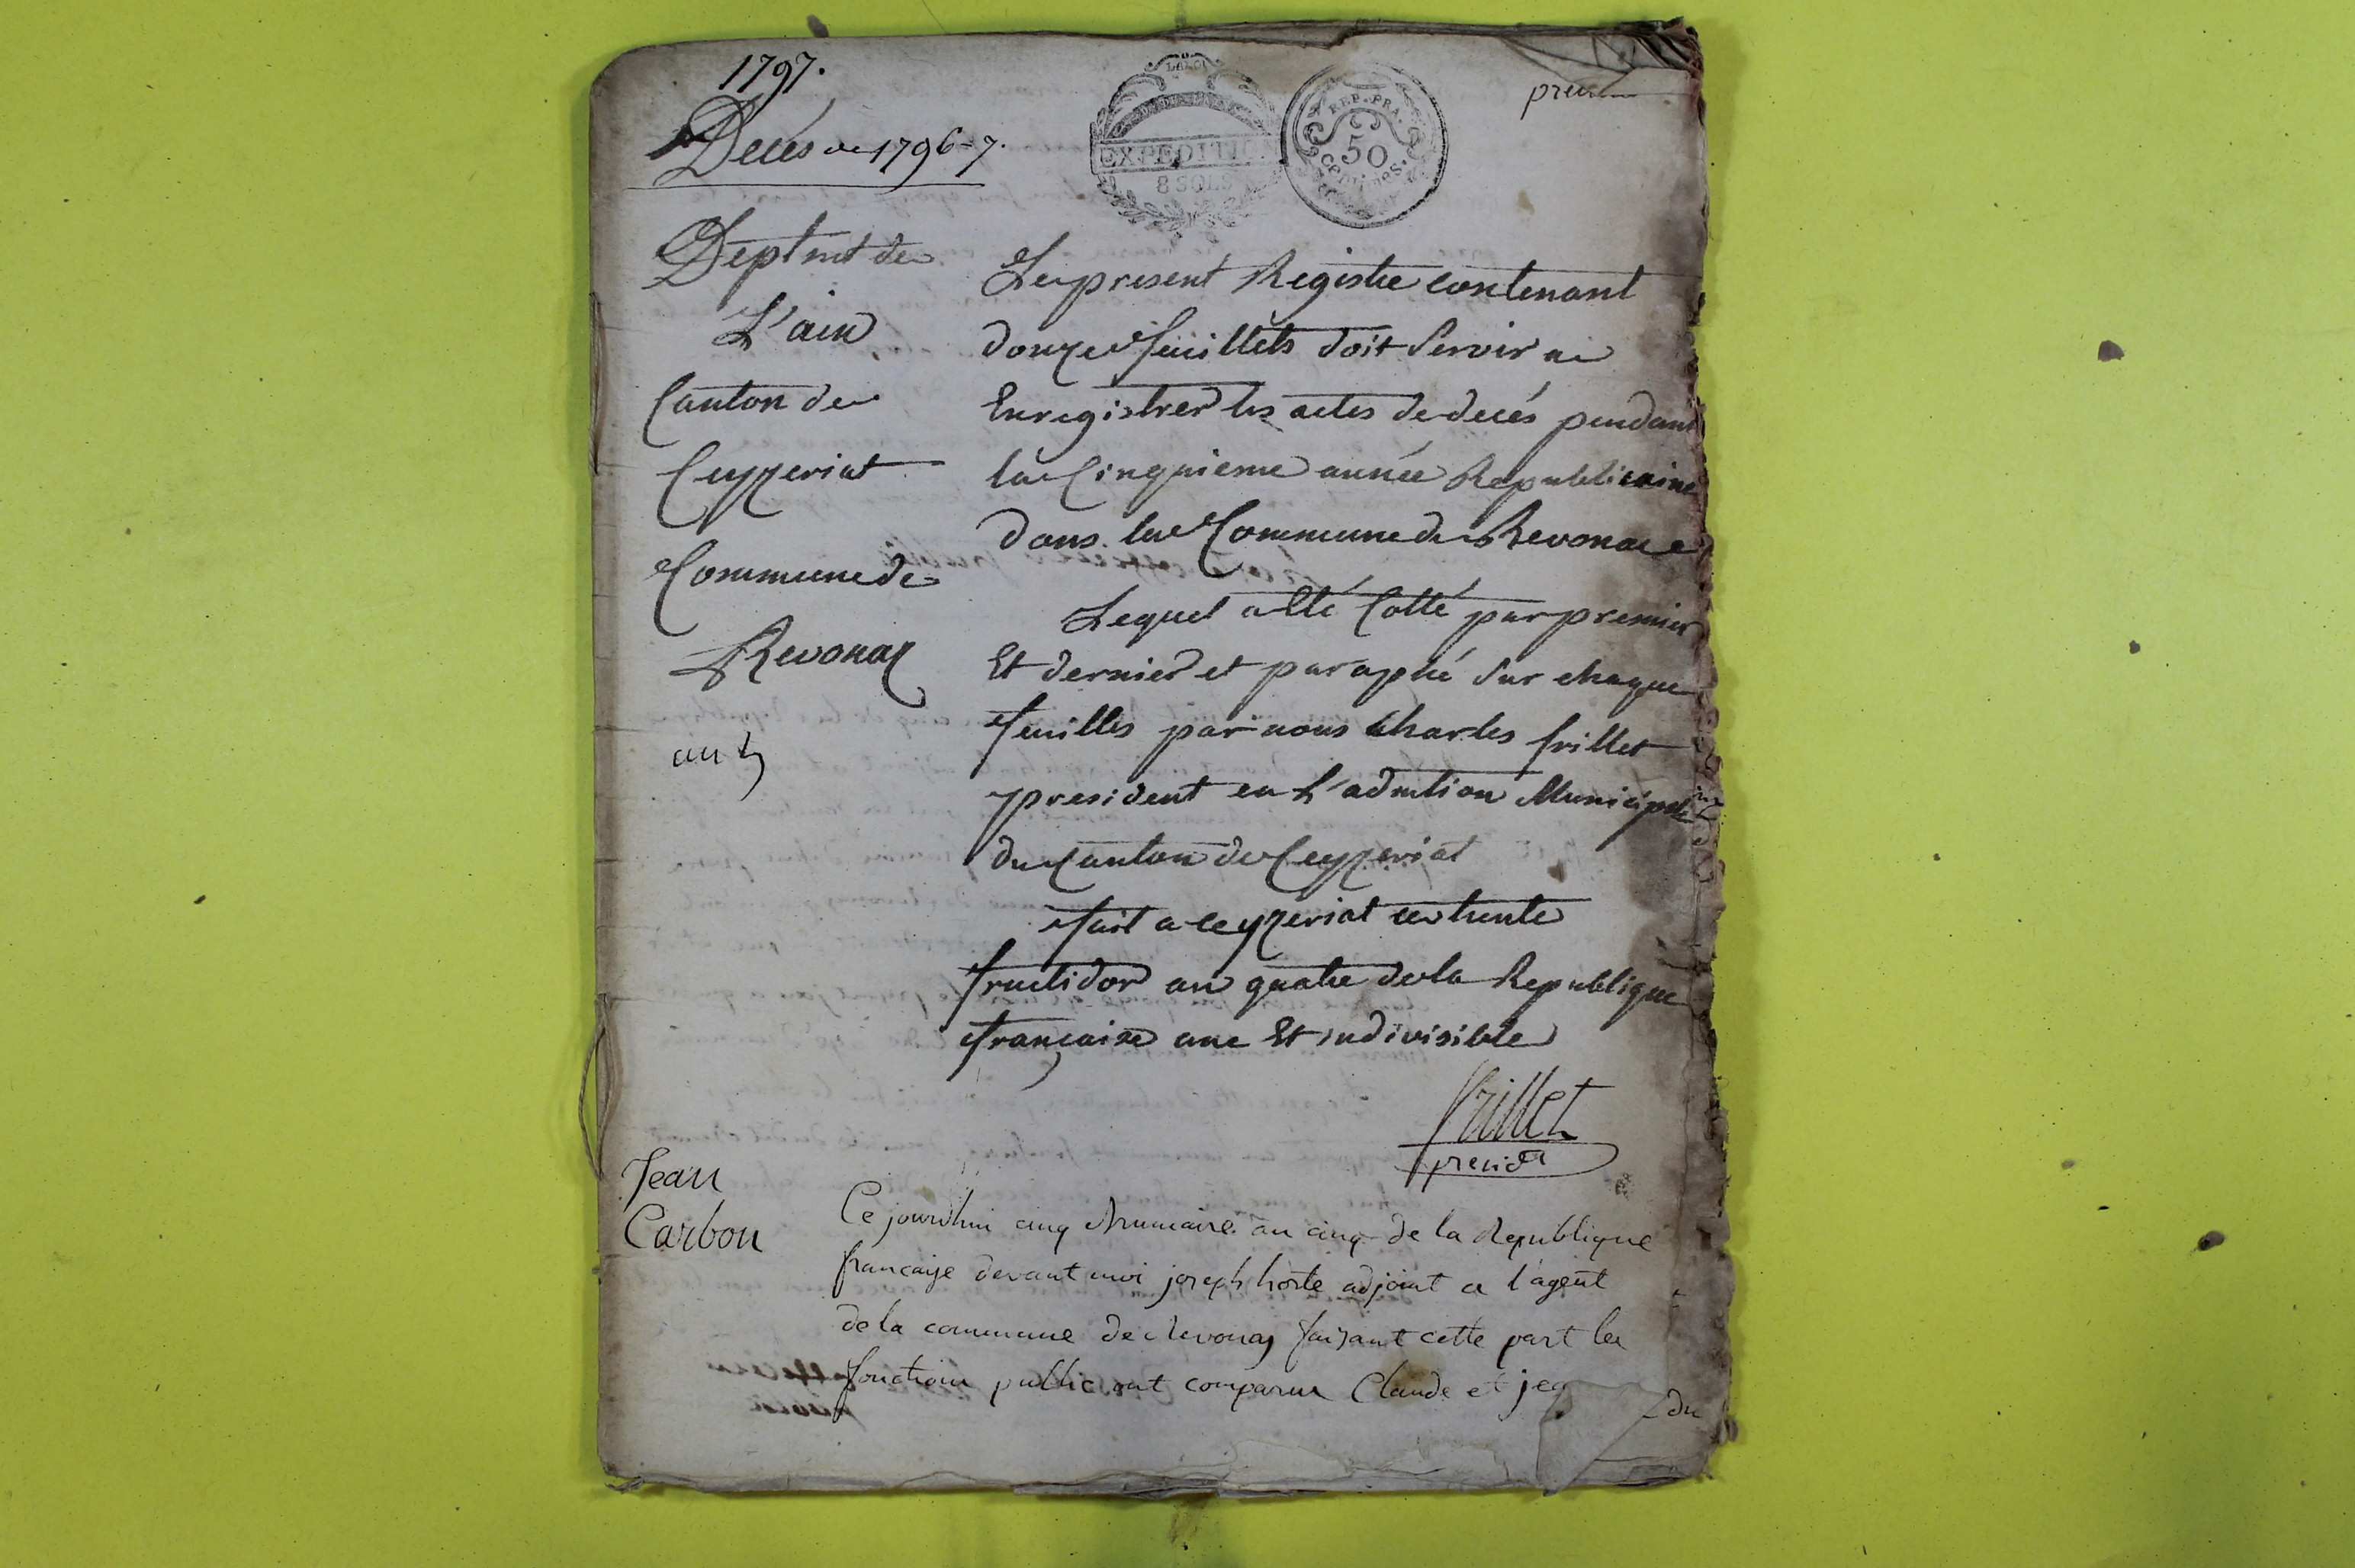 1797.
Decés de 1796=7.
premier
LA LOI
EXPEDITION
8 SOLS
REP. FRA.
50
centimes.
Deptmt de
L'ain
Canton de
Ceyzeriat
Commune de
Revonaz
an 5
Le present Registre contenant
douze feuillets doit Servir a
Enregistrer les actes de decés pendant
la Cinquieme année Republicaine
dans la Commune de Revonaz
Lequel a Eté Cotté par premier
Et dernier et paraphé Sur chaque
feuilles par nous Charles frillet
president en L'admtion Municipale
du Canton de Ceyzeriat
fait a ceyzeriat ce trente
fructidor an quatre de la Republique
française une Et indivisible
frillet
presidt
Jean
Carbon
Ce jourdhui cinq Brumaire an cinq de la Republique
francaise devant moi joseph hoste adjoint a l'agent
de la commune de Revonas faisant cette part les
fonction public ont comparu Claude et jea
du